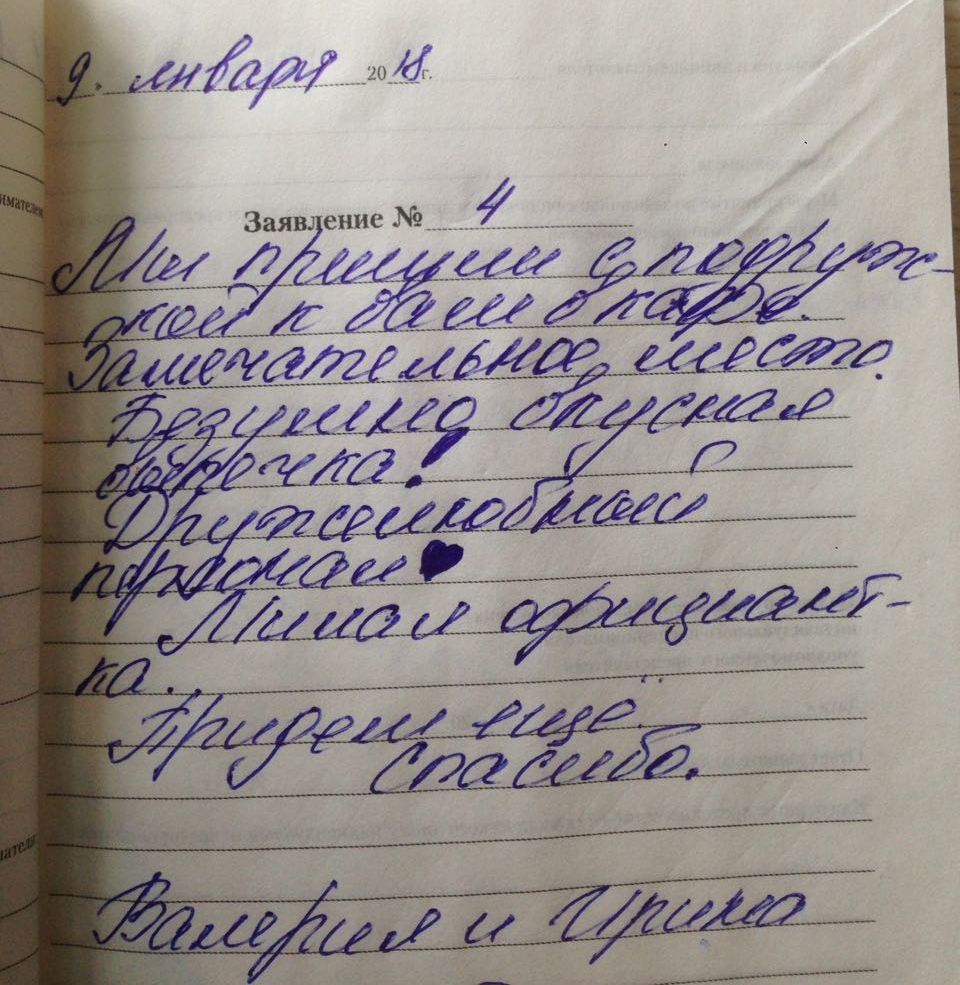 9. января 2018 г.
Заявление № 4
Мы пришли с подруж-
кой к вам в кафе.
Замечательное место.
Безумно вкусная
овсечка!
Дружелюбный
персонал ♥
Милая официант-
ка.
Придем ещё.
Спасибо.
Валерия и Ирина
нимателем
мателя